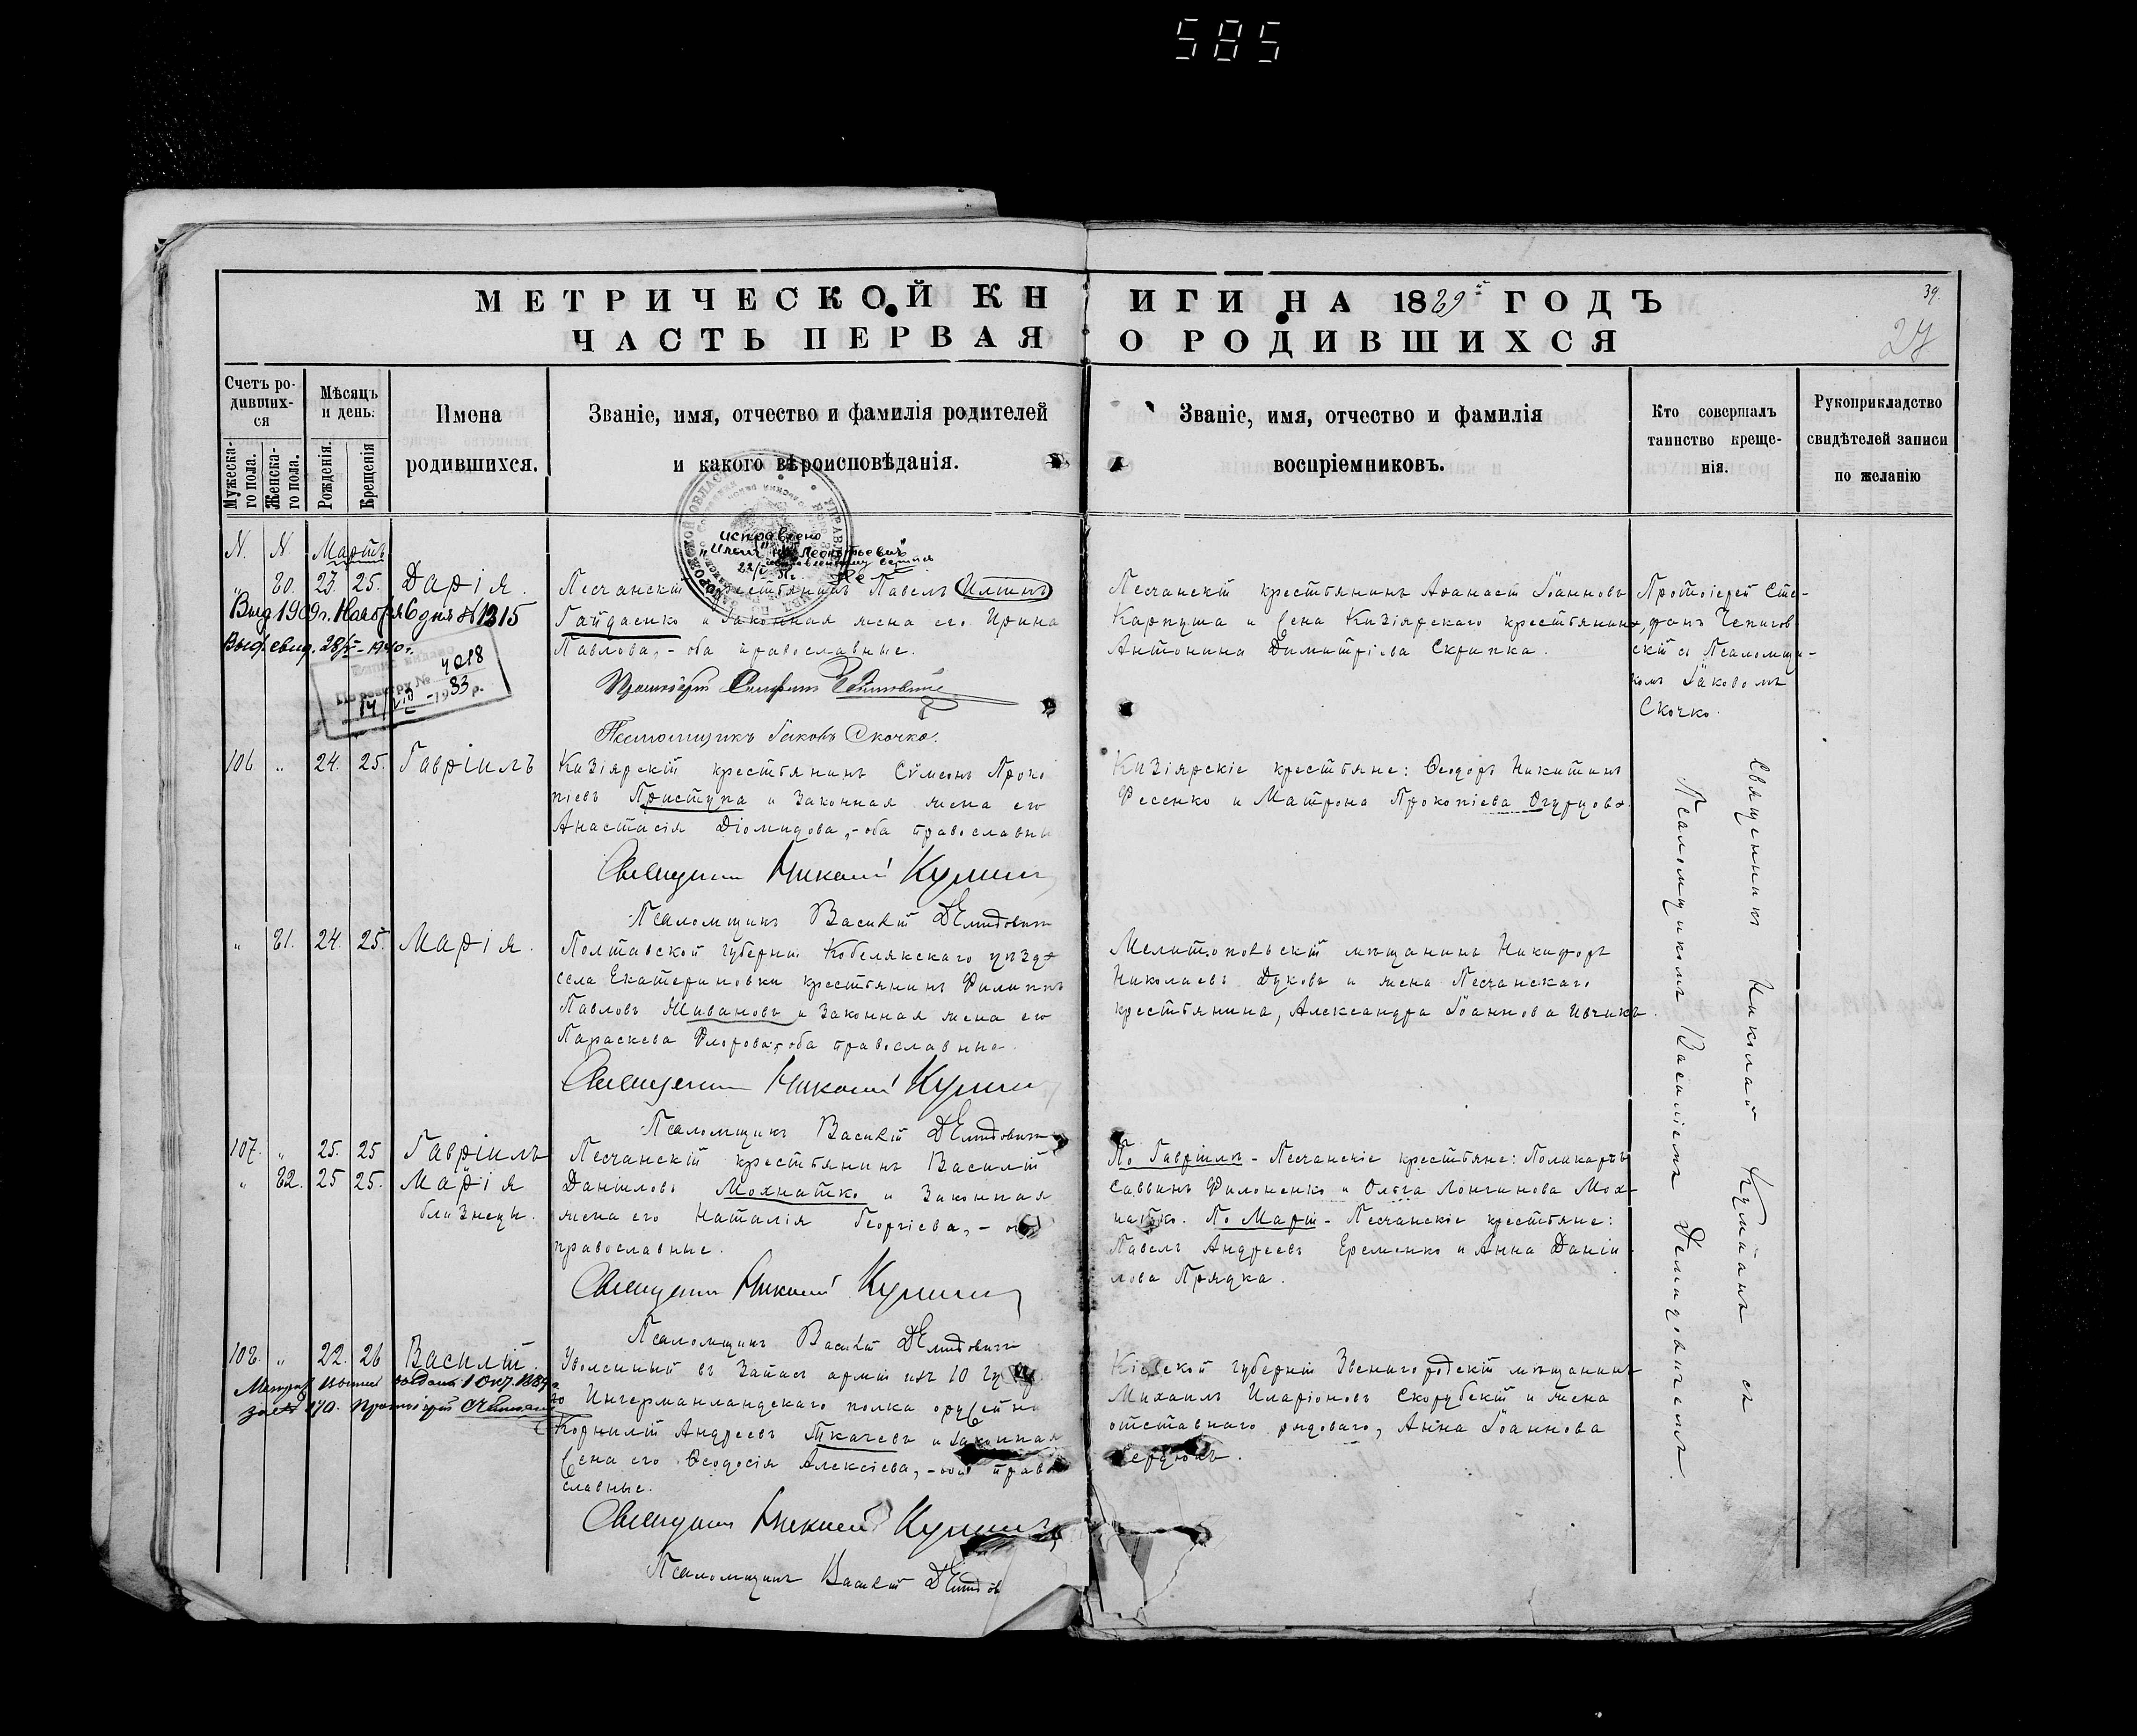 585
МЕТРИЧЕСКОЙ КНИГИ НА 1889й ГОДЪ
39.
ЧАСТЬ ПЕРВАЯ О РОДИВШИХСЯ
27
Счетъ родившихся
Мѣсяцъ и день.
Имена родившихся.
Званіе, имя, отчество и фамилія родителей и какого вѣроисповѣданія.
Званіе, имя, отчество и фамилія воспріемниковъ.
Кто совершалъ таинство крещенія.
Рукоприкладство свидѣтелей записи по желанію
Мужеска-го пола.
Женска-го пола.
Рожденія.
Крещенія
N. N. Мартъ
исправлено
" 80. 23. 25. Дарія.
Песчанскій крестьянинъ Павелъ Илтинъ
Гайдаенко и законная жена его Ирина
Павлова, - оба православные.
Песчанскій крестьянинъ Аѳанасій Іоанновъ
Карпуша и жена Кизіярскаго крестьянина,
Антонина Димитріева Скрипка.
Протоіерей Сте-
фанъ Чепигов-
скій съ Псаломщи-
комъ Іаковомъ
Скочко.
Выд. 1909 г. Ноября 6 дня № 1315
Выд. свид. 28/ -1940 г.
По реестру № 4018
14/VIII-1933 р.
Псаломщикъ Іаковъ Скочко.
106 " 24. 25. Гавріилъ
Кизіярскій крестьянинъ Сѵмеонъ Проко
піевъ Приступа и законная жена его
Анастасія Діомидова, - оба православны
Кизіярскіе крестьяне: Ѳеодоръ Никитинъ
Фесенко и Матрона Прокопіева Огурцова.
Священникъ Николай
Псаломщикъ Василій Демидовичъ
" 81. 24. 25. Марія.
Полтавской губерніи Кобелякскаго уѣзда
села Екатериновки крестьянинъ Филиппъ
Павловъ Живановъ и законная жена его
Параскева Флорова, оба православные.
Мелитопольскій мѣщанинъ Никифоръ
Николаевъ Духовъ и жена Песчанскаго
крестьянина, Александра Іоаннова Ивчикъ.
Священникъ Николай
Псаломщикъ Василій Демидовичъ
107. " 25. 25 Гавріилъ
" 82. 25 25. Марія
близнецы.
Песчанскій крестьянинъ Василій
Даніиловъ Мохнатко и законная
жена его Наталія Георгіева, - оба
православные.
По Гавріилѣ - Песчанскіе крестьяне: Поликарпъ
Саввинъ Филоненко и Ольга Лонгинова Мох-
натко. По Маріи - Песчанскіе крестьяне:
Павелъ Андреевъ Еременко и Анна Даніи-
лова Прядка.
Священникъ Николай
Псаломщикъ Василій Демидовичъ
108. " 22. 26 Василій.
Уволенный въ запасъ арміи изъ 10
Ингерманландскаго полка
Корнилій Андреевъ Ткачевъ и законная
жена его Ѳеодосія Алексіева, - оба право
славные.
Кіевской губерніи Звенигородскій мѣщанинъ
Михаилъ Иларіоновъ Скорубскій и жена
отставнаго рядоваго, Анна Іоаннова
Сердюкъ.
Священникъ Николай
Псаломщикъ Василій Демидов
Священникъ Николай съ
Псаломщикомъ Василіемъ Демидовичемъ.